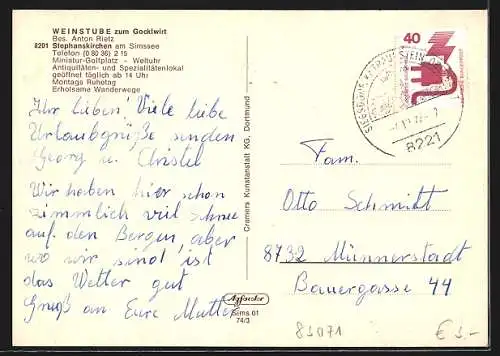 WEINSTUBE zum Gocklwirt
Bes. Anton Rietz
8201 Stephanskirchen am Simssee
Telefon (0 80 36) 2 15
Miniatur-Golfplatz - Weltuhr
Antiquitäten- und Spezialitätenlokal
geöffnet täglich ab 14 Uhr
Montags Ruhetag
Erholsame Wanderwege
Ihr Lieben! Viele liebe
Urlaubgrüße senden
Georg u. Christel
Wir haben hier schon
zimmlich viel schnee
auf den Bergen, aber
wo wir sind ist
das Wetter gut
Gruß an Eure Mutter
Cramers Kunstanstalt KG, Dortmund
Sims 01
74/3
40
8221
Fam.
Otto Schmidt
8732 Münnerstadt
Bauergasse 44
83071
€ 3.-